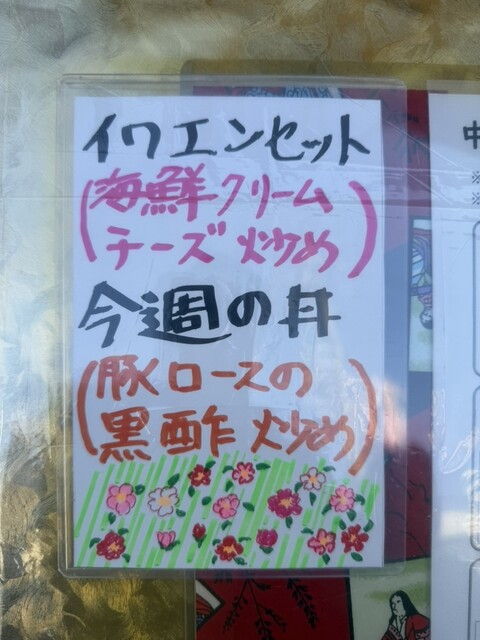 イワエンセット
(海鮮クリーム
チーズ炒め)
今週の丼
(豚ロースの
黒酢炒め)
中
※
※